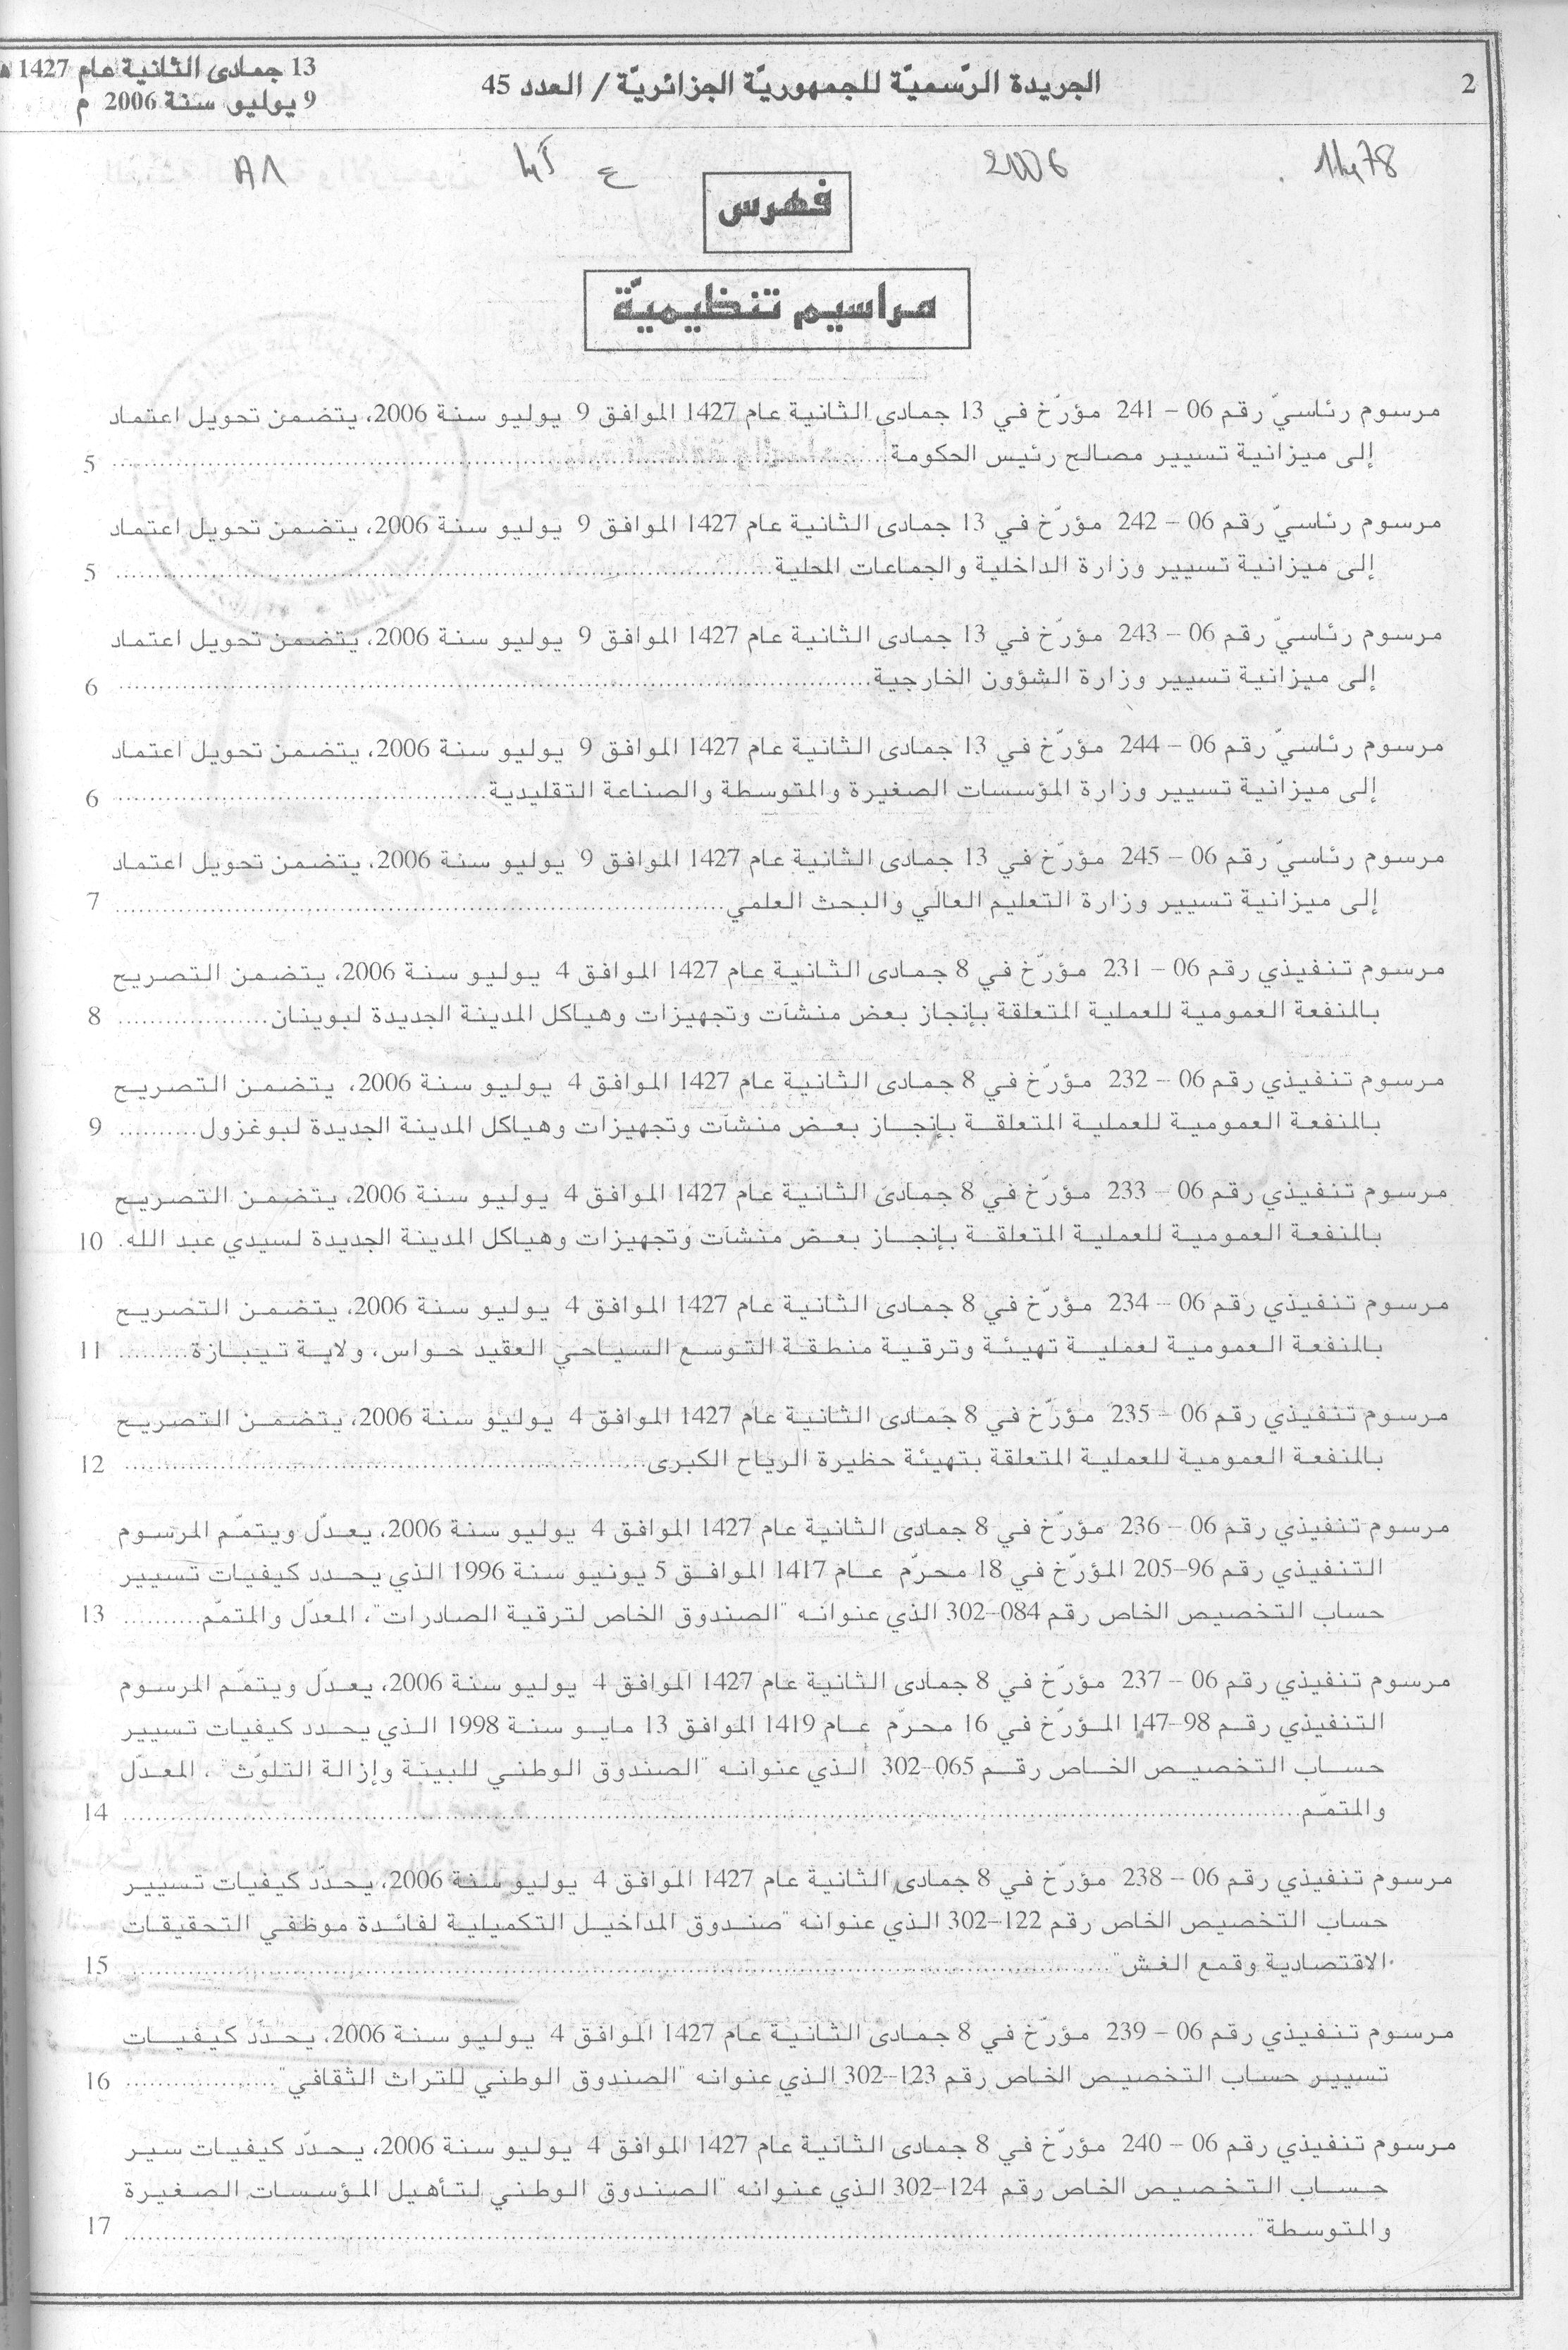 2
الجريدة الرّسميّة للجمهوريّة الجزائريّة / العدد 45
13 جمادى الثانية عام 1427 هـ
9 يوليو سنة 2006 م
2006
فهرس
مراسيم تنظيميّة
مرسوم رئاسيّ رقم 06 – 241 مؤرّخ في 13 جمادى الثانية عام 1427 الموافق 9 يوليو سنة 2006، يتضمن تحويل اعتماد
إلى ميزانية تسيير مصالح رئيس الحكومة.......... 5
مرسوم رئاسيّ رقم 06 – 242 مؤرّخ في 13 جمادى الثانية عام 1427 الموافق 9 يوليو سنة 2006، يتضمن تحويل اعتماد
إلى ميزانية تسيير وزارة الداخلية والجماعات المحلية.......... 5
مرسوم رئاسيّ رقم 06 – 243 مؤرّخ في 13 جمادى الثانية عام 1427 الموافق 9 يوليو سنة 2006، يتضمن تحويل اعتماد
إلى ميزانية تسيير وزارة الشؤون الخارجية.......... 6
مرسوم رئاسيّ رقم 06 – 244 مؤرّخ في 13 جمادى الثانية عام 1427 الموافق 9 يوليو سنة 2006، يتضمن تحويل اعتماد
إلى ميزانية تسيير وزارة المؤسسات الصغيرة والمتوسطة والصناعة التقليدية.......... 6
مرسوم رئاسيّ رقم 06 – 245 مؤرّخ في 13 جمادى الثانية عام 1427 الموافق 9 يوليو سنة 2006، يتضمن تحويل اعتماد
إلى ميزانية تسيير وزارة التعليم العالي والبحث العلمي.......... 7
مرسوم تنفيذي رقم 06 – 231 مؤرّخ في 8 جمادى الثانية عام 1427 الموافق 4 يوليو سنة 2006، يتضمن التصريح
بالمنفعة العمومية للعملية المتعلقة بإنجاز بعض منشآت وتجهيزات وهياكل المدينة الجديدة لبوينان.......... 8
مرسوم تنفيذي رقم 06 – 232 مؤرّخ في 8 جمادى الثانية عام 1427 الموافق 4 يوليو سنة 2006، يتضمن التصريح
بالمنفعة العمومية للعملية المتعلقة بإنجاز بعض منشآت وتجهيزات وهياكل المدينة الجديدة لبوغزول.......... 9
مرسوم تنفيذي رقم 06 – 233 مؤرّخ في 8 جمادى الثانية عام 1427 الموافق 4 يوليو سنة 2006، يتضمن التصريح
بالمنفعة العمومية للعملية المتعلقة بإنجاز بعض منشآت وتجهيزات وهياكل المدينة الجديدة لسيدي عبد الله. 10
مرسوم تنفيذي رقم 06 – 234 مؤرّخ في 8 جمادى الثانية عام 1427 الموافق 4 يوليو سنة 2006، يتضمن التصريح
بالمنفعة العمومية لعملية تهيئة وترقية منطقة التوسع السياحي العقيد حواس، ولاية تيبازة.......... 11
مرسوم تنفيذي رقم 06 – 235 مؤرّخ في 8 جمادى الثانية عام 1427 الموافق 4 يوليو سنة 2006، يتضمن التصريح
بالمنفعة العمومية للعملية المتعلقة بتهيئة حظيرة الرياح الكبرى.......... 12
مرسوم تنفيذي رقم 06 – 236 مؤرّخ في 8 جمادى الثانية عام 1427 الموافق 4 يوليو سنة 2006، يعدّل ويتمّم المرسوم
التنفيذي رقم 96–205 المؤرّخ في 18 محرّم عام 1417 الموافق 5 يونيو سنة 1996 الذي يحدد كيفيات تسيير
حساب التخصيص الخاص رقم 084–302 الذي عنوانه "الصندوق الخاص لترقية الصادرات"، المعدّل والمتمّم.......... 13
مرسوم تنفيذي رقم 06 – 237 مؤرّخ في 8 جمادى الثانية عام 1427 الموافق 4 يوليو سنة 2006، يعدّل ويتمّم المرسوم
التنفيذي رقم 98–147 المؤرّخ في 16 محرّم عام 1419 الموافق 13 مايو سنة 1998 الذي يحدد كيفيات تسيير
حساب التخصيص الخاص رقم 065–302 الذي عنوانه "الصندوق الوطني للبيئة وإزالة التلوّث"، المعدّل
والمتمّم.......... 14
مرسوم تنفيذي رقم 06 – 238 مؤرّخ في 8 جمادى الثانية عام 1427 الموافق 4 يوليو سنة 2006، يحدّد كيفيات تسيير
حساب التخصيص الخاص رقم 122–302 الذي عنوانه "صندوق المداخيل التكميلية لفائدة موظفي التحقيقات
الاقتصادية وقمع الغش".......... 15
مرسوم تنفيذي رقم 06 – 239 مؤرّخ في 8 جمادى الثانية عام 1427 الموافق 4 يوليو سنة 2006، يحدّد كيفيات
تسيير حساب التخصيص الخاص رقم 123–302 الذي عنوانه "الصندوق الوطني للتراث الثقافي".......... 16
مرسوم تنفيذي رقم 06 – 240 مؤرّخ في 8 جمادى الثانية عام 1427 الموافق 4 يوليو سنة 2006، يحدّد كيفيات سير
حساب التخصيص الخاص رقم 124–302 الذي عنوانه "الصندوق الوطني لتأهيل المؤسسات الصغيرة
والمتوسطة".......... 17